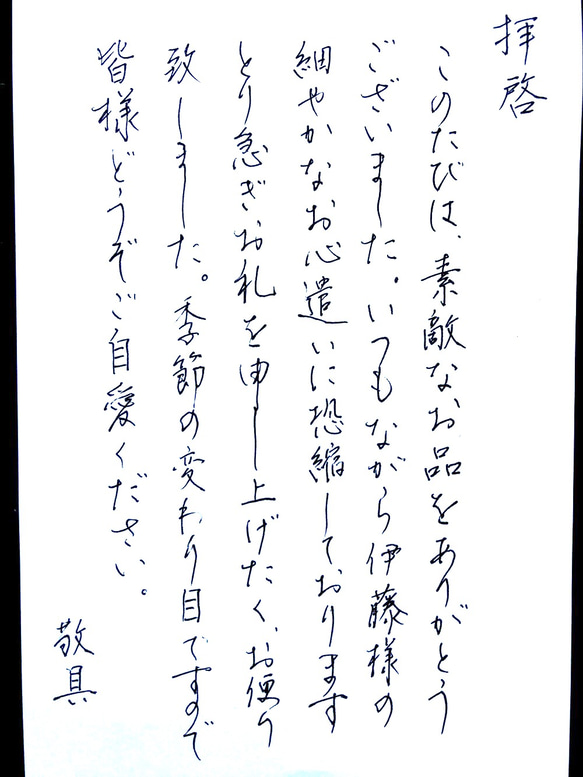 拝啓
このたびは、素敵なお品をありがとう
ございました。いつもながら伊藤様の
細やかなお心遣いに恐縮しております
とり急ぎお礼を申し上げたく、お便り
致しました。季節の変わり目ですので
皆様どうぞご自愛ください。
敬具